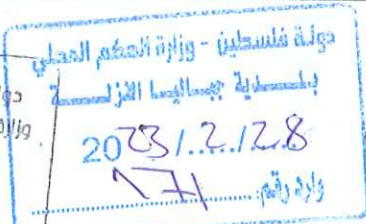 دولة فلسطين - وزارة الحكم المحلي
بلدية جباليا النزلة
2023/2/28
وارد رقم: ١٧١